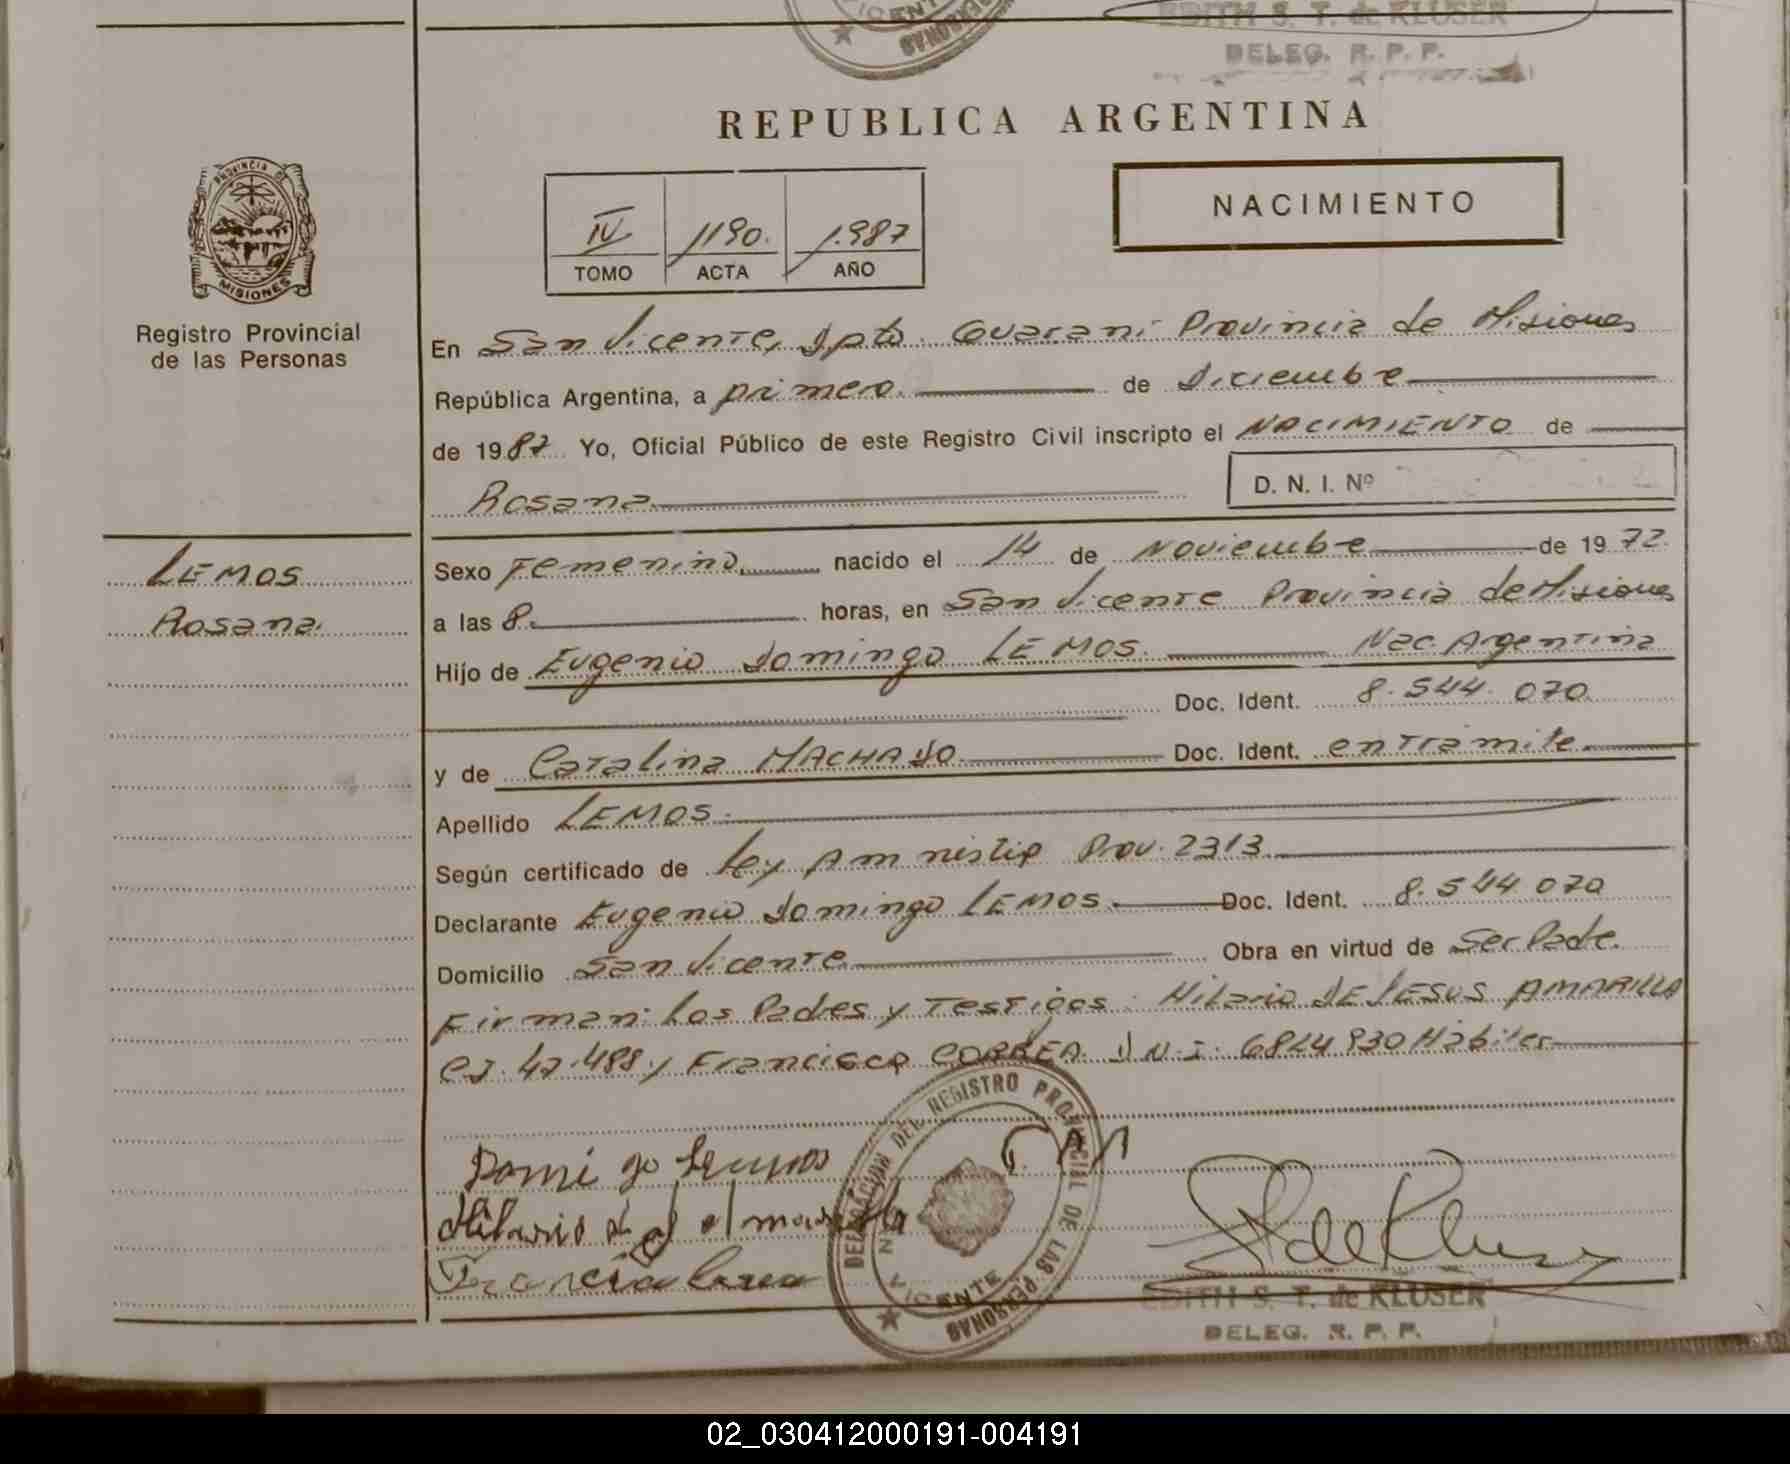 EDITH S. T. de KLUSER
DELEG. R. P. P.
REPUBLICA ARGENTINA
NACIMIENTO
IV 1190. 1.987
TOMO ACTA AÑO
PROVINCIA DE
MISIONES
Registro Provincial
de las Personas
En San Vicente, Dpto. Guarani Provincia de Misiones
República Argentina, a primero. de Diciembre
de 1987 Yo, Oficial Público de este Registro Civil inscripto el NACIMIENTO de
Rosana
D. N. I. Nº
LEMOS
Rosana.
Sexo Femenino nacido el 14 de Noviembre de 1972.
a las 8. horas, en San Vicente Provincia de Misiones
Hijo de Eugenio Domingo LEMOS. Nac. Argentina
Doc. Ident. 8.544.070.
y de Catalina MACHADO. Doc. Ident. en tramite.
Apellido LEMOS.
Según certificado de Ley Amnistia Prov. 2313.
Declarante Eugenio Domingo LEMOS. Doc. Ident. 8.544.070
Domicilio San Vicente Obra en virtud de Ser Padre.
Firman: Los Padres y Testigos: Hilario DE JESUS AMARILLA
CI. 47.488 y Francisco CORREA. D.N.I. 6824930 Hábiles
DELEGACION DEL REGISTRO PROVINCIAL DE LAS PERSONAS
VICENTE
EDITH S. T. de KLUSER
DELEG. R. P. P.
02_030412000191-004191